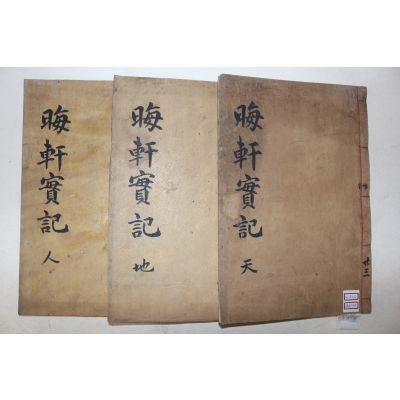 晦軒實記 天
共三
晦軒實記 地
晦軒實記 人